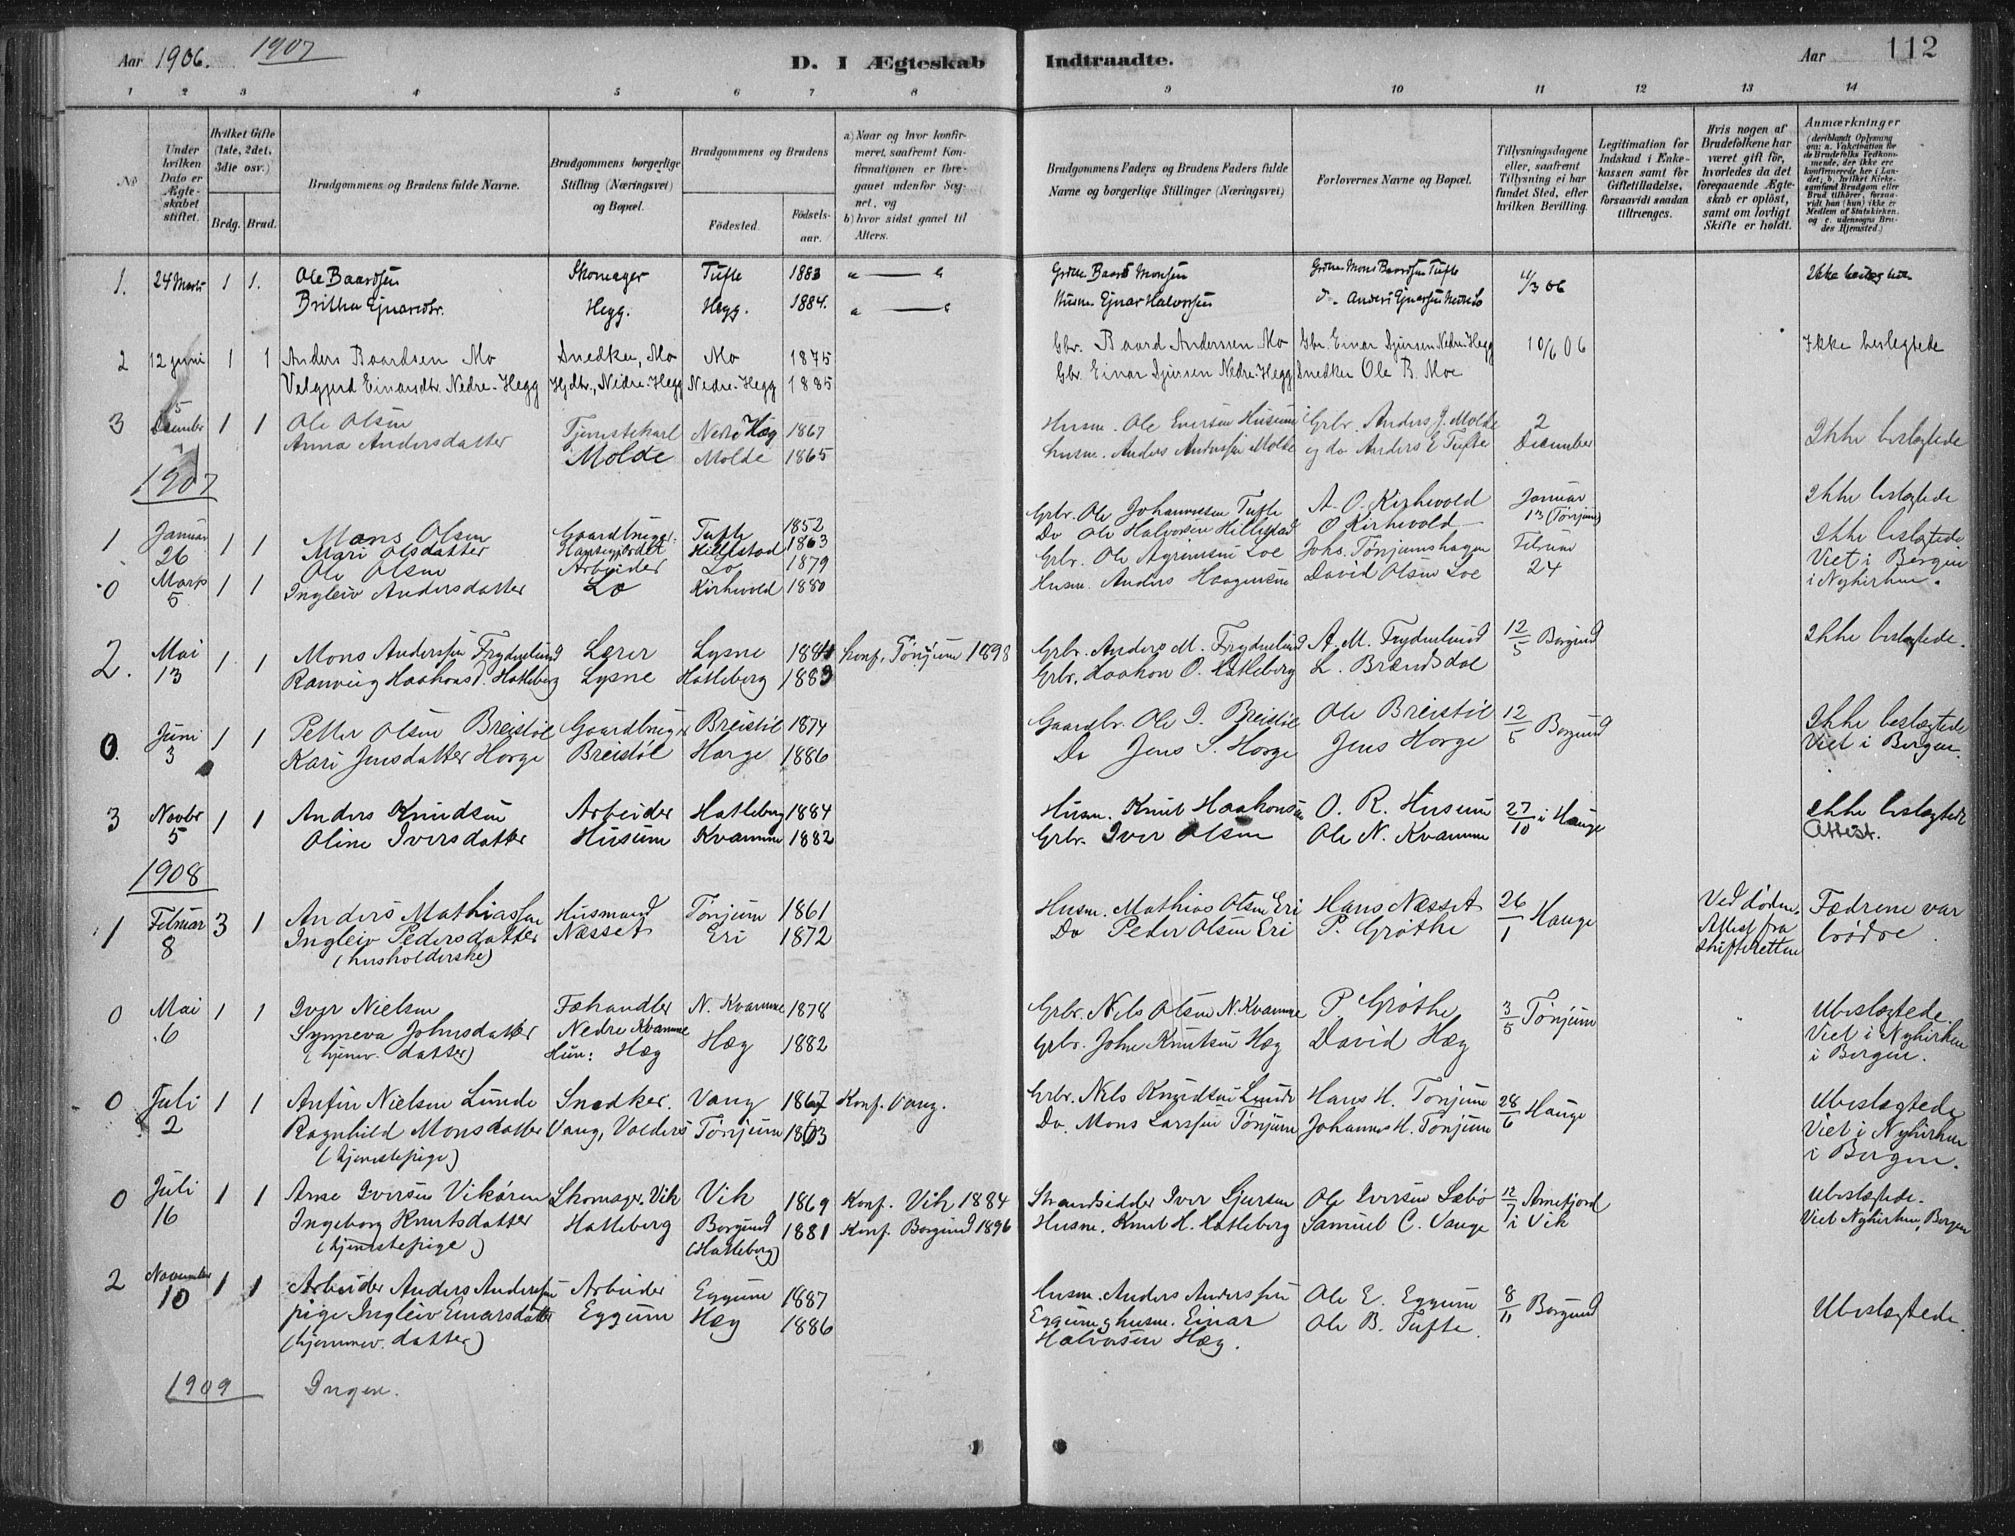 Aar 1906. 1907
D. I Ægteskab Indtraadte.
Aar 112
1 2 3 4 5 6 7 8 9 10 11 12 13 14
No
Under hvilken Dato er Ægteskabet stiftet.
Hvilket Gifte (1ste, 2det, 3die osv.)
Brdg. Brud.
Brudgommens og Brudens fulde Navne.
Brudgommens borgerlige Stilling (Næringsvei) og Bopæl.
Brudgommens og Brudens
Födested.
Födsels-aar.
a) Naar og hvor konfirmeret, saafremt Konfirmationen er foregaaet udenfor Sognet, og
b) hvor sidst gaaet til Alters.
Brudgommens Faders og Brudens Faders fulde Navne og borgerlige Stillinger (Næringsvei)
Forlovernes Navne og Bopæl.
Tillysningsdagene eller, saafremt Tillysning ei har fundet Sted, efter hvilken Bevilling.
Legitimation for Indskud i Enkekassen samt for Giftetilladelse, forsaavidt saadan tiltrænges.
Hvis nogen af Brudefolkene har været gift för, hvorledes da det foregaaende Ægteskab er oplöst, samt om lovligt Skifte er holdt.
Anmærkninger
1. 24 Marts 1 1. Ole Baardsen Skomager Tufte 1883 Baard Monsen Mons Baardsen Tufte 11/3 06
Britha Ejnarsdtr. Hegg. Hegg. 1884. Husm. Ejnar Halvorsen
2 12 juni 1 1 Anders Baardsen Mo Snedker, Mo Mo 1875 Gbr. Baard Anderssen Mo Gbr. Einar Djursen Nedre-Hegg 10/6 06 Ikke beslegtede
Velgjerd Einarsdtr. Nedre-Hegg Hjdtr., Nedre-Hegg Nedre-Hegg 1885 Gbr. Einar Djursen Nedre-Hegg Snedker Ole B. Moe
3 5 December 1 1 Ole Olsen Tjenestekarl Nedre Hæg 1867 Husm. Ole Eversen Husum Grbr. Anders J. Molde 2 December Ikke beslægtede
Anna Andersdatter Molde Molde 1865 husm. Anders Anderssen Molde og do Anders E Tufte
1907
1 Januar 26 1 1 Mons Olsen Gaardbruger Tufte 1852 Grbr. Ole Johannessen Tufte A. O. Kirkevold Januar 13 (Tønjum) Ikke beslægtede
Mari Olsdatter Hillestad 1863 Do Ole Halvorsen Hillestad O Kirkevold
0 Marts 5 1 1 Ole Olsen Arbeider Lo 1879 Grbr. Ole Loe Johs. Tønjumshagen Februar 24 Ikke beslægtede Viet i Bergen i Nykirken.
Ingleiv Andersdatter Lo Kirkevold 1880 Husm. Anders Haagensen David Olsen Loe
2. Mai 13 1 1 Mons Anderssen Frydenlund Lærer Lysne 1881 Konf. Tønjum 1898 Grbr. Anders M. Frydenlund A. M. Frydenlund 12/5 Borgund Ikke beslægtede.
Ranveig Haakonsd. Hatleberg Lysne Hatleberg 1883 Grbr. Haakon O. Hatleberg L. Brændsdal
0. Juni 3 1 1 Petter Olsen Breistøl Gaardbruger Breistøl 1874 Gaardbr. Ole I. Breistøl Ole Breistøl 12/5 Borgund Ikke beslægtede Viet i Bergen.
Kari Jensdatter Horge Breistøl Horge 1886 Do Jens S. Horge Jens Horge
3 Novbr 5 1 1 Anders Knudsen Arbeider Hatleberg 1884 Husm. Knut Haakonsen O. R. Husum 27/10 i Hauge Ikke beslægtede Attest.
Oline Iversdatter Husum Kvamme 1882 Grbr. Iver Olsen Ole N. Kvamme
1908
1 Februar 8 3 1 Anders Mathiassen Husmand Tønjum 1861 Husm. Mathias Olsen Eri Hans Næsset 26/1 Hauge Ved døden. Attest fra skifteretten Fædrene var brødre.
Ingleiv Pedersdatter Næsset Eri 1872 Do Peder Olsen Eri P. Grøthe
(husholderske)
0 Mai 6 1 1 Iver Nielsen Fæhandler N. Kvamme 1878 Grbr. Nils Olsen N. Kvamme P. Grøthe 3/5 Tønjum Ubeslægtede. Viet i Nykirken i Bergen.
Synneva Johnsdatter Nedre Kvamme Hæg 1882 Grbr. John Knutsen Hæg David Hæg
(hjemv. datter) Hun: Hæg
0 Juli 2 1 1 Anfin Nielsen Lunde Snedker. Vang 1867 Konf. Vang. Grbr. Nils Knudsen Lunde Hans H. Tønjum 28/6 Hauge Ubeslægtede Viet i Nykirken i Bergen.
Ragnhild Monsdatter Vang, Valders Tønjum Do. Mons Larssen Tønjum Johannes H. Tønjum
(tjenestepige)
0 Juli 16 1 1 Arne Iversen Vikøren Skomager. Vik Vik 1869 Konf. Vik 1884 Strandsidder Iver Sjursen Ole Iversen Sæbø 12/7 Arnefjord i Vik Ubeslægtede. Viet Nykirken, Bergen
Ingeborg Knutsdatter Hatleberg Borgund (Hatleberg) 1881 Konf. Borgund 1896 Husm. Knut H. Hatleberg Samuel C. Vange
(tjenestepige)
2 November 10 1 1 Arbeider Anders Anderssen Arbeider Eggum 1887 Husm. Anders Anderssen Ole E. Eggum 8/11 Borgund Ubeslægtede.
pige Ingleiv Einarsdatter Eggum Hæg 1886 Eggum og husm. Einar Ole B. Tufte.
(hjemmev. datter) Halvorsen Hæg.
1909 Ingen.